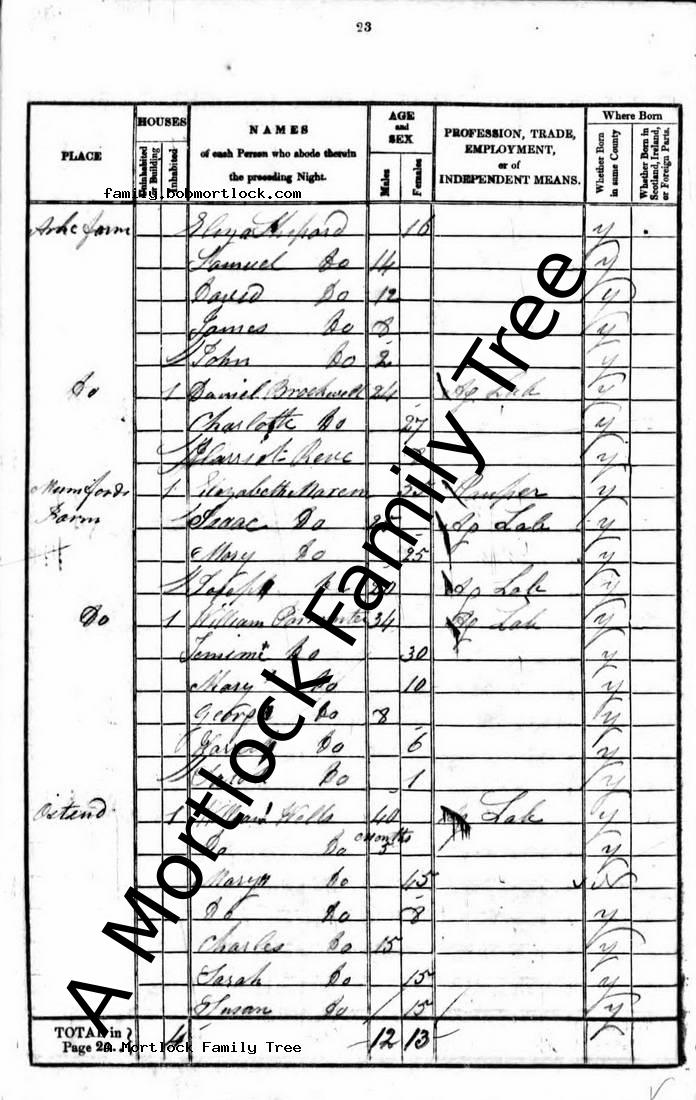 23
PLACE
HOUSES
Uninhabited or Building
Inhabited
NAMES
of each Person who abode therein
the preceding Night.
AGE
and
SEX
Males
Females
PROFESSION, TRADE,
EMPLOYMENT,
or of
INDEPENDENT MEANS.
Where Born
Whether Born in same County
Whether Born in Scotland, Ireland, or Foreign Parts.
family.bobmortlock.com
farm 16 y
Samuel Do 14 y
David Do 12 y
James Do 8 y
John Do 2 y
Do 1 Daniel Brockwell 24 Ag Lab y
Charlotte Do 27 y
Harriot y
Mumfords 1 Elizabeth Pauper y
Farm Isaac Do Ag Lab y
Mary Do 25 y
Joseph Ag Lab y
Do 1 William 34 Ag Lab y
Do 30 y
Mary Do 10 y
George Do 8 y
Do 6 y
Do 1 y
Ostend 1 William Wells 40 Lab y
Do Do Months 5 y
Mary Do 45 N
Do Do 8 y
Charles Do 15 y
Sarah Do 15 y
Susan Do 15 y
TOTAL in
Page 23. 4 12 13
A Mortlock Family Tree
A Mortlock Family Tree